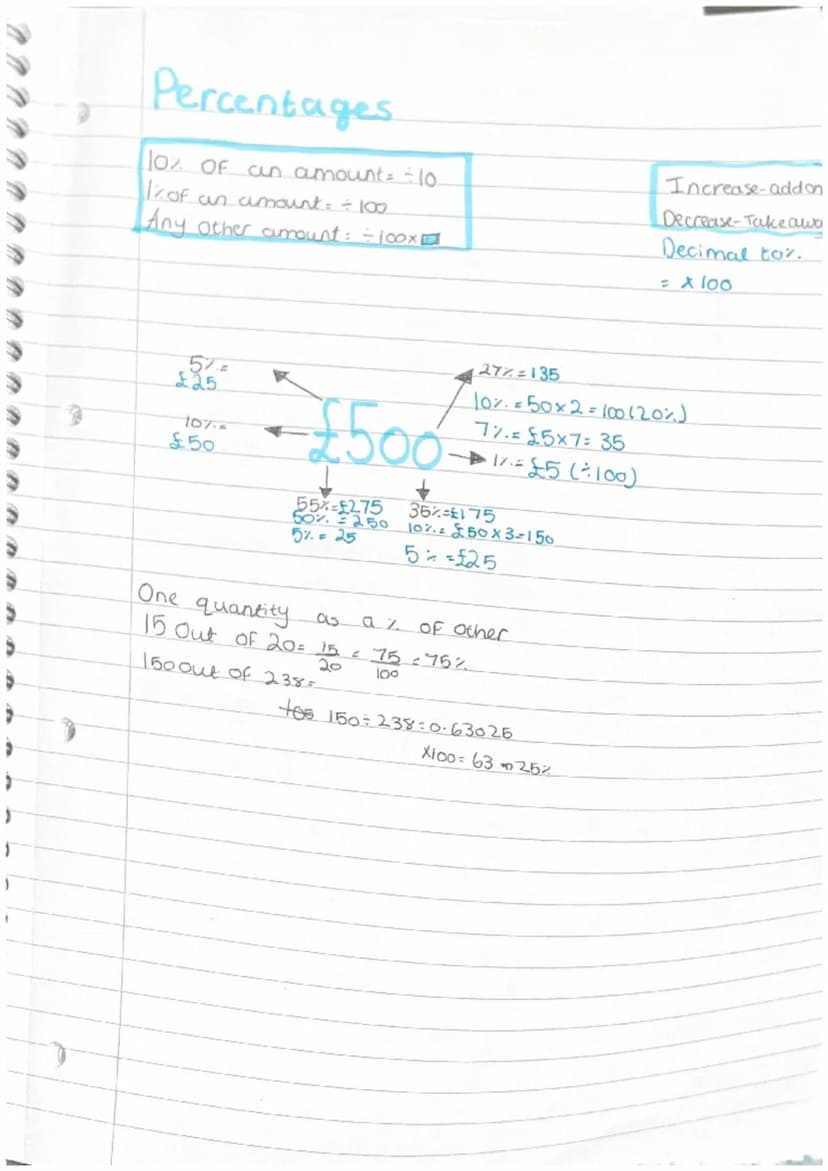 Percentages
10% OF an amount= ÷10
1% of an amount= ÷100
Any other amount= ÷100×□
Increase-add on
Decrease-Takeawa
Decimal to %.
= ×100
5%=
£25
10%=
£50
£500
27%=135
10%=50×2=100(20%)
7%=£5×7=35
1%=£5 (÷100)
55%=£275
50%=250
5%=25
35%=£175
10%=£50×3=150
5%=£25
One quantity as a % OF other
15 Out OF 20= 15/20 = 75/100 =75%
150 out of 238=
150÷238=0.63025
×100=63 025%